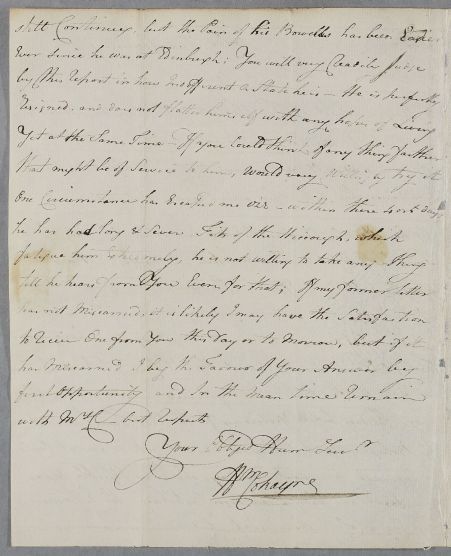 still Continues, but the Pain of his Bowells has been Easier
Ever since he was at Edinburgh; You will very Readily Judge
by this Report in how Indifferent a State he is – He is perfectly
Resigned, and does not flatter himself with any hopes of Living
Yet at the Same Time If you Could think of any thing farther
that might be of Service to him, would very Willingly try it
One Circumstance has Escaped me viz – within these 4 or 5 days
he has had long & Severe Fits of the Hiccough, which
fatigue him Extremely, he is not willing to take any thing
till he hears from You Even for that; If my former Letter
has not Miscarried, it is likely I may have the Satisfaction
to Receive One from You this day or to Morrow, but if it
has Miscarried I beg the Favour of Your Answer by
first Opportunity and In the mean time Remain
with Mrs C– best Respects
Your Obliged Hum Servt
Wm